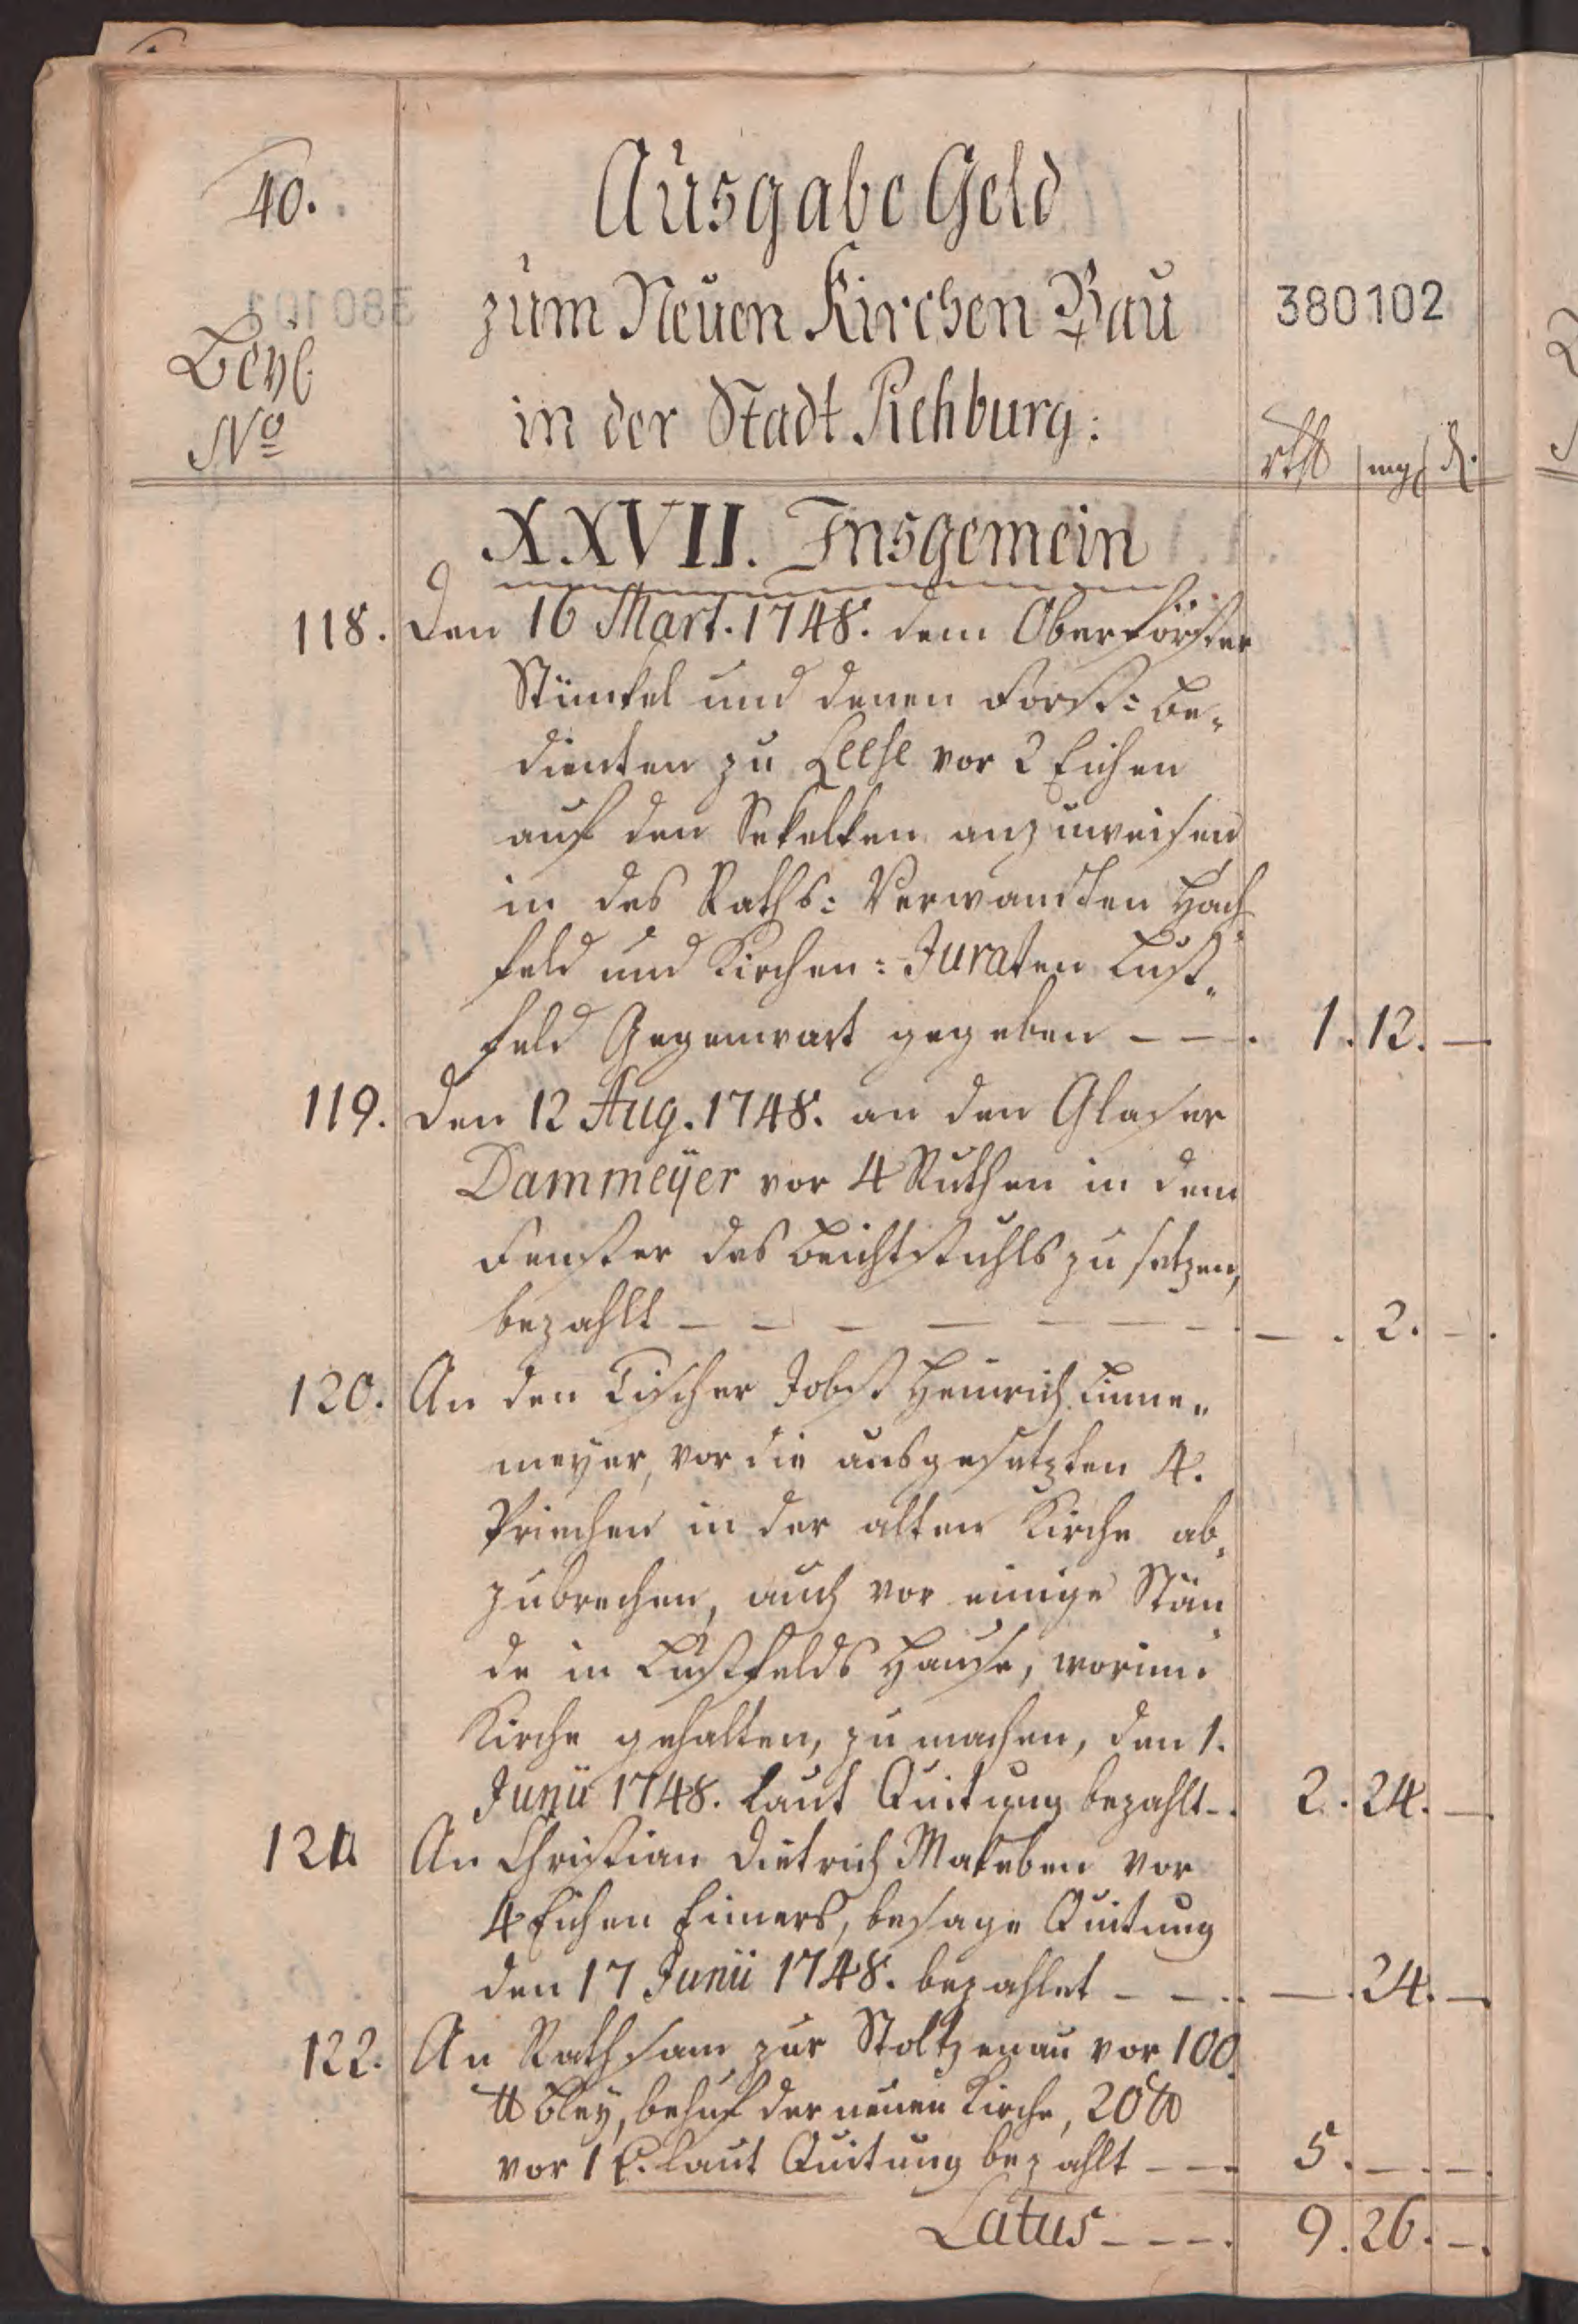 40.
Ausgabe Geld
zum Neuen Kirchen Bau
380102
Beyl.
in der Stadt Rehburg:
No
rthl mg d.
XXVII. Insgemein
118. Den 16 Mart. 1748. dem Oberförster
Stünkel und denen Forst: Be„
dienten zu Leese vor 2 Eichen
auf den anzuweisen
in des Raths: Verwandten Hach
feld und Kirchen: Juraten Lust„
feld Gegenwart gegeben – – . 1. 12. –
119. Den 12 Aug. 1748. an den Glaser
Dammeÿer vor 4 Ruthen in dem
Fenster des Beichtstuhls zu setzen,
bezahlt – – – – – – – . – . 2. – .
120. An den Tischer Jobst Heinrich
meyer, vor die ausgesetzten 4.
Priechen in der alten Kirche ab„
zubrechen, auch vor einige Stän„
de in Lustfelds Hause, worinn
Kirche gehalten, zu machen, den 1.
Junii 1748. laut Quitung bezahlt – . 2. 24. –
121. An Christian Dietrich Makeben vor
4 Eichen Eimers, besage Quitung
den 17 Junii 1748. bezahlet – – . – . 24. –
122. An Rathsam zur Stoltzenau vor 100.
℔ Bley, behuf der neuen Kirche, 20 ℔
vor 1 laut Quitung bezahlt – – 5. – . – .
Latus – – – . 9. 26. – .